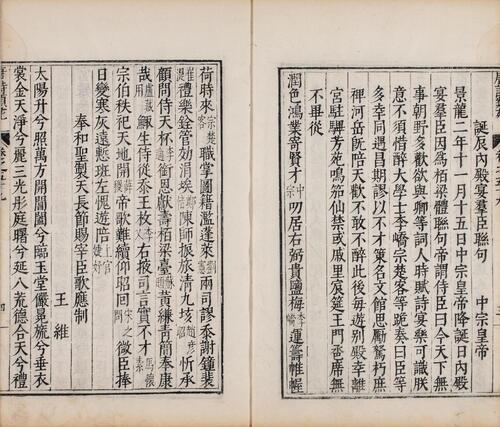 誕辰內殿宴羣臣聯句
中宗皇帝
景龍二年十一月十五日中宗皇帝降誕日內殿
宴羣臣因為栢梁體聯句帝謂侍臣曰今天下無
事朝野多歡欲與卿等詞人時賦詩宴樂可識朕
意不須惜醉大學士李嶠宗楚客等跪奏曰臣等
多幸同遇昌期以不才策名文館思勵駑朽庶
裨河岳旣陪天歡不敢不醉此後每遊別殿幸離
宮駐驆芳苑鳴笳仙禁或戚里宸筵王門卺席無
不畢從
潤色鴻業寄賢才中宗叨居右弼貴鹽梅李嶠運籌帷幄
荷時來宗楚客職掌圖籍濫蓬來劉憲兩司謬忝謝鐘裴
崔湜禮樂銓管効涓埃鄭愔陳師振旅清九垓趙彥昭忻承
顧問侍天杯李適銜恩獻壽栢梁臺蘇頲黃縑靑簡奉康
哉盧藏用鯫生侍從忝王枚李乂右掖司言實不才馬懷素
宗伯秩祀天地開薛稷帝歌難續仰昭回宋之問微臣捧
日變寒灰陸景初遠慙班左愧遊陪上官婕妤
奉和聖製天長節賜宰臣歌應制
王維
太陽升兮照萬方開閶闔兮臨玉堂儼冕旒兮垂衣
裳金天淨兮麗三光彤庭曙兮延八荒德合天兮禮